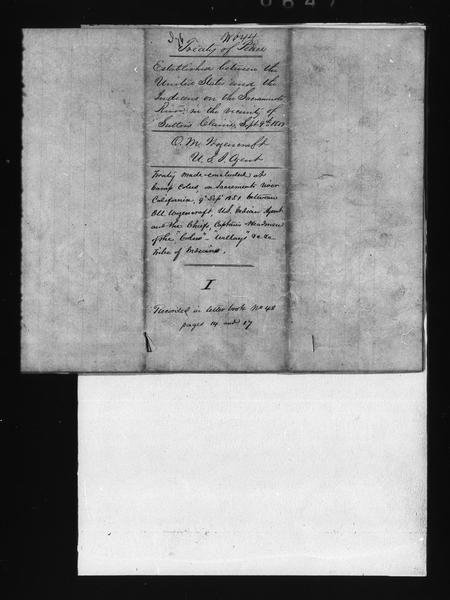 No 44
Treaty of Peace
Established between the
United States and the
Indians on the Sacramento
River, in the vicinity of
Sutter's Claim, Sept 9th 1851
O. M. Wozencraft
U. S. I. Agent
Treaty made & concluded at
Camp Colus, on Sacramento river
California, 9th Sept 1851 between
O M Wozencraft, U.S. Indian Agent
and the Chiefs, Captains & Headmen
of the "Colus" - "Willays" &c &c
Tribe of Indians.
I
Recorded in letter book No 48
pages 14 and 17